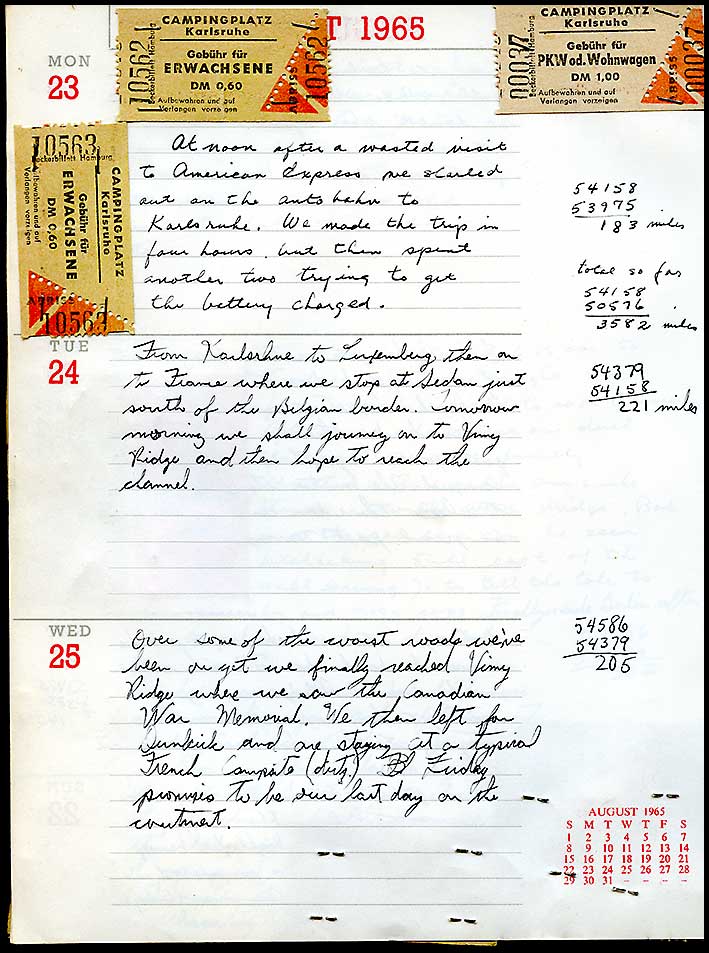 T 1965
CAMPINGPLATZ
Karlsruhe
Gebühr für
ERWACHSENE
DM 0,60
Aufbewahren und auf
Verlangen vorzeigen
Beckerbillett Hamburg
10562
10562
ABRISS
CAMPINGPLATZ
Karlsruhe
Gebühr für
PKW od. Wohnwagen
DM 1,00
Aufbewahren und auf
Verlangen vorzeigen
Beckerbillett Hamburg
00037
00037
ABRISS
MON
23
10563
Beckerbillett Hamburg
CAMPINGPLATZ
Karlsruhe
Gebühr für
ERWACHSENE
DM 0,60
Aufbewahren und auf
Verlangen vorzeigen
ABRISS
10563
At noon after a wasted visit
to American Express we started
out on the autobahn to
Karlsruhe. We made the trip in
four hours, but then spent
another two trying to get
the battery charged.
54158
53975
183 miles
total so far
54158
50576
3582 miles
TUE
24
From Karlsrhue to Luxemburg then on
to France where we stop at Sedan just
south of the Belgian border. Tomorrow
morning we shall journey on to Vimy
Ridge and then hope to reach the
channel.
54379
54158
221 miles
WED
25
Over some of the worst roads we've
been on yet we finally reached Vimy
Ridge where we saw the Canadian
War Memorial. We then left for
Dunkirk and are staying at a typical
French Campsite (dirty.) Friday
promises to be our last day on the
continent.
54586
54379
205
AUGUST 1965
S M T W T F S
1 2 3 4 5 6 7
8 9 10 11 12 13 14
15 16 17 18 19 20 21
22 23 24 25 26 27 28
29 30 31 - - - -